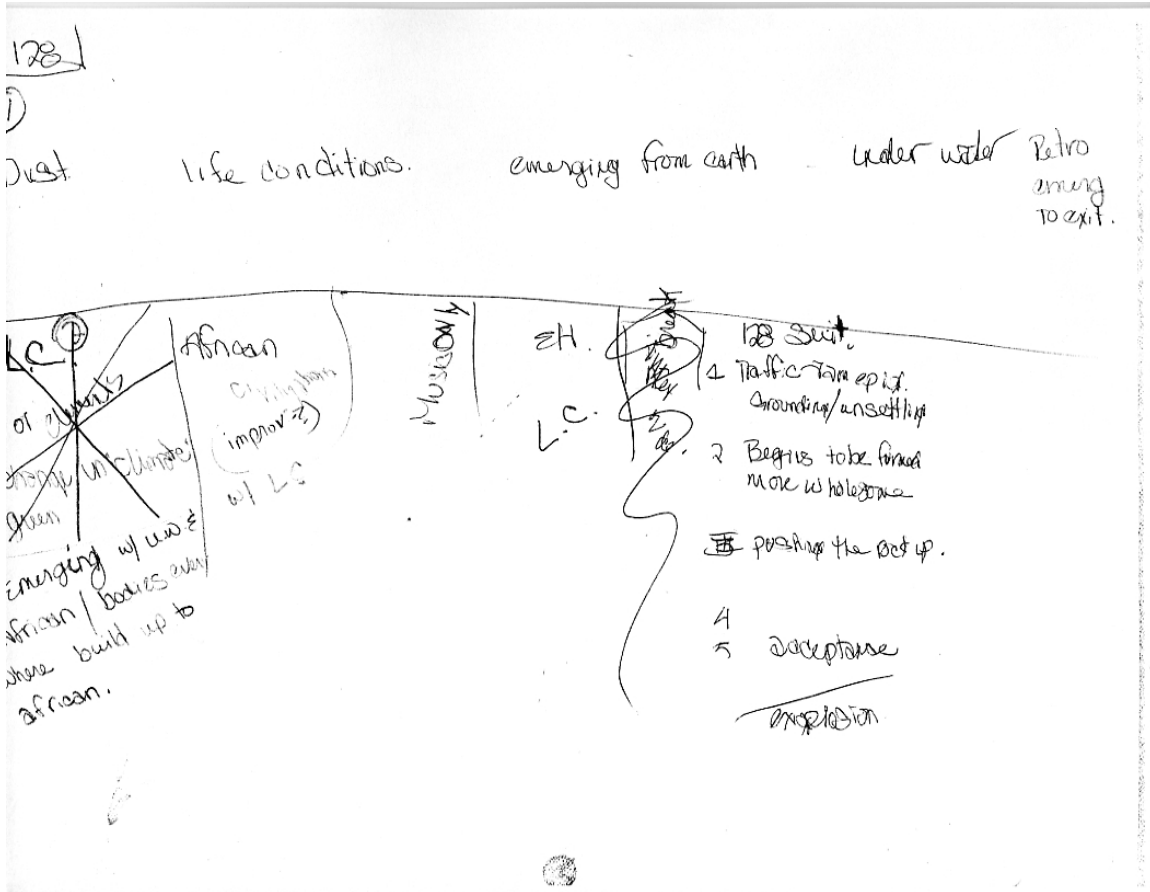 128
1
Dust life conditions. emerging from earth under water Petro
emerg
TO exit.
L.C.
or elements
change in climate
green
Emerging w/ u.w. &
african / bodies every
where build up to
african.
African
(improv?)
w/ L.C
MussONy
EH.
L.C.
128 Suit.
1 Traffic Jam epif.
Grounding/unsettling
2 Begins to be formed
more wholesome
3 pushing the act up.
4
5 acceptance
explosion